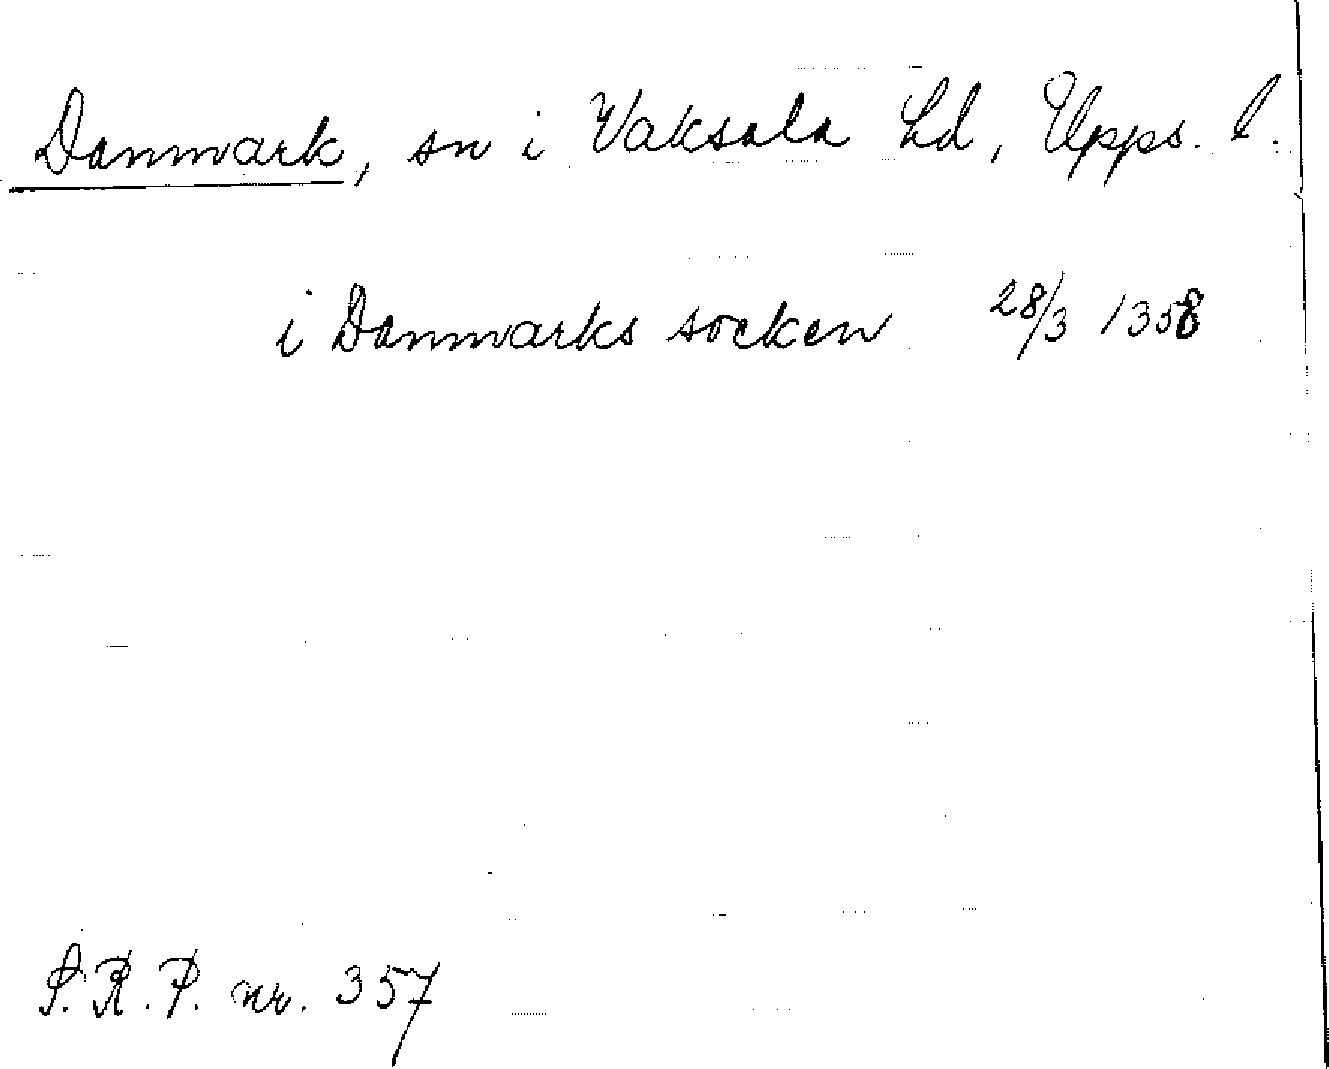 Danmark, sn i Vaksala hd, Upps. l.
i Danmarks socken 28/3 1358
S.R.P. nr. 357